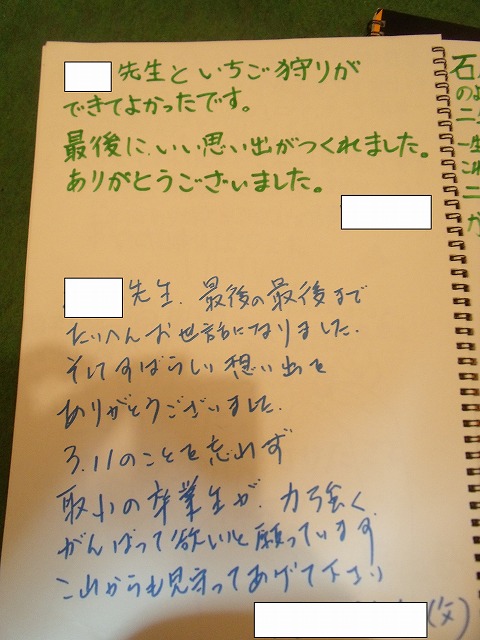 先生といちご狩りが
できてよかったです。
最後に、いい思い出がつくれました。
ありがとうございました。
先生、最後の最後まで
たいへんお世話になりました。
そしてすばらしい想い出を
ありがとうございました。
3.11のことを忘れず
取小の卒業生が、力強く
がんばって欲しいと願っています
これからも見守ってあげて下さい
(父)
石
のよ
二
一生
これ
二
が